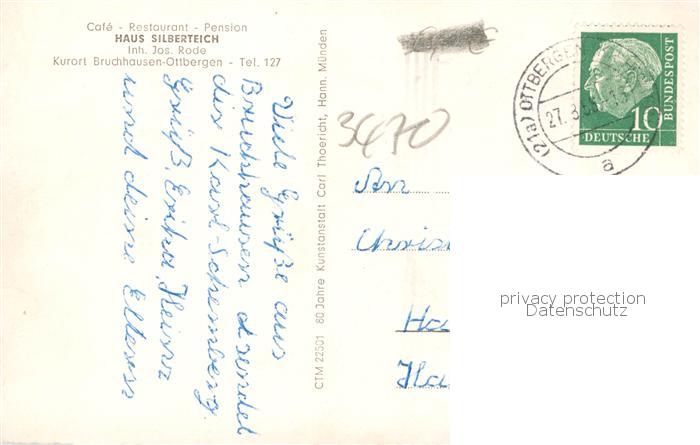 Café - Restaurant - Pension
HAUS SILBERTEICH
Inh. Jos. Rode
Kurort Bruchhausen-Ottbergen - Tel. 127
Viele Grüße aus
Bruchhausen sendet
dir Karl-Schemberg.
Gruß, Erika, Heinz
und deine Eltern
CTM 22501 80 Jahre Kunstanstalt Carl Thoericht, Hann. Münden
3470
(21a) OTTBERGEN
27.8.
a
10
DEUTSCHE
BUNDESPOST
An
Chris
Ha
Ha
privacy protection
Datenschutz